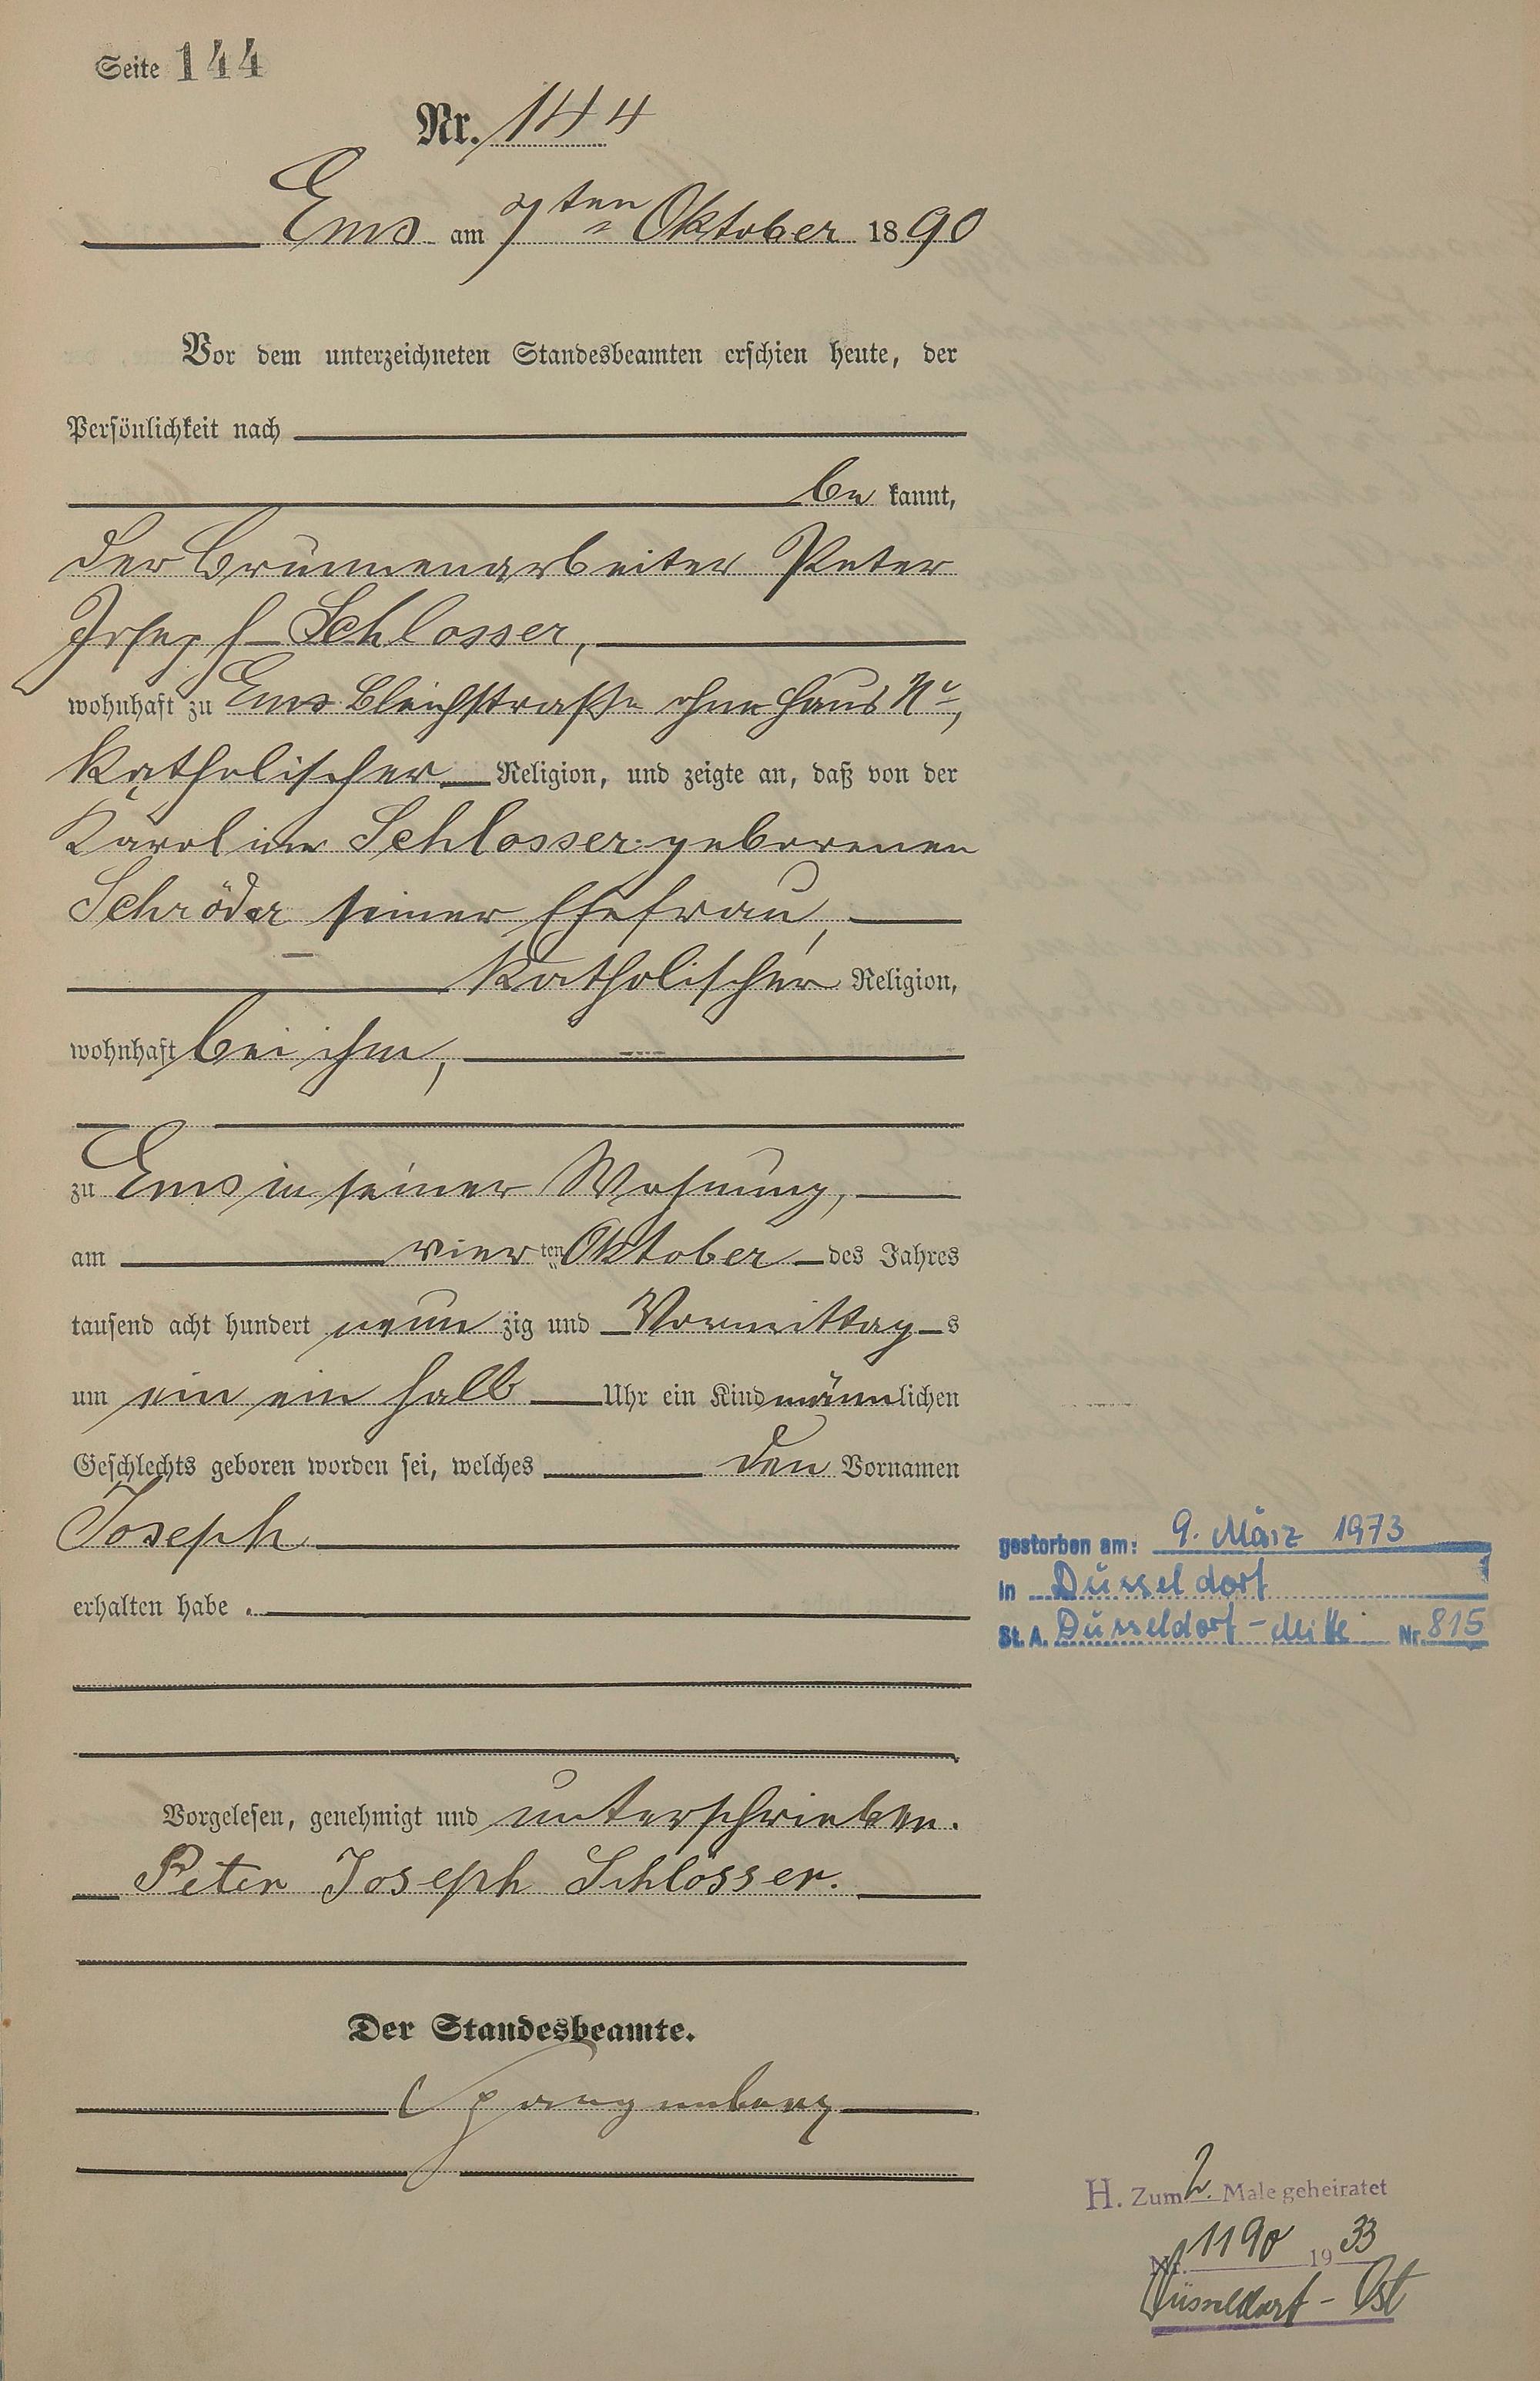 Seite 144
Nr. 144
Ems am 7ten Oktober 1890
Vor dem unterzeichneten Standesbeamten erschien heute, der
Persönlichkeit nach
be kannt,
der Brunnenarbeiter Peter
Joseph Schlosser,
wohnhaft zu Ems Bleichstraße ohne Haus No,
katholischer Religion, und zeigte an, daß von der
Karoline Schlosser geborenen
Schröder seiner Ehefrau,
katholischer Religion,
wohnhaft bei ihm,
zu Ems in seiner Wohnung,
am vier ten Oktober des Jahres
tausend acht hundert neun zig und Vormittag s
um ein ein halb Uhr ein Kind männlichen
Geschlechts geboren worden sei, welches den Vornamen
Joseph
erhalten habe.
Vorgelesen, genehmigt und unterschrieben.
Peter Joseph Schlosser.
Der Standesbeamte.
gestorben am: 9. März 1973
in Düsseldorf
St. A. Düsseldorf-Mitte Nr. 815
H. Zum 2. Male geheiratet
Nr. 1190 1933
Düsseldorf-Ost